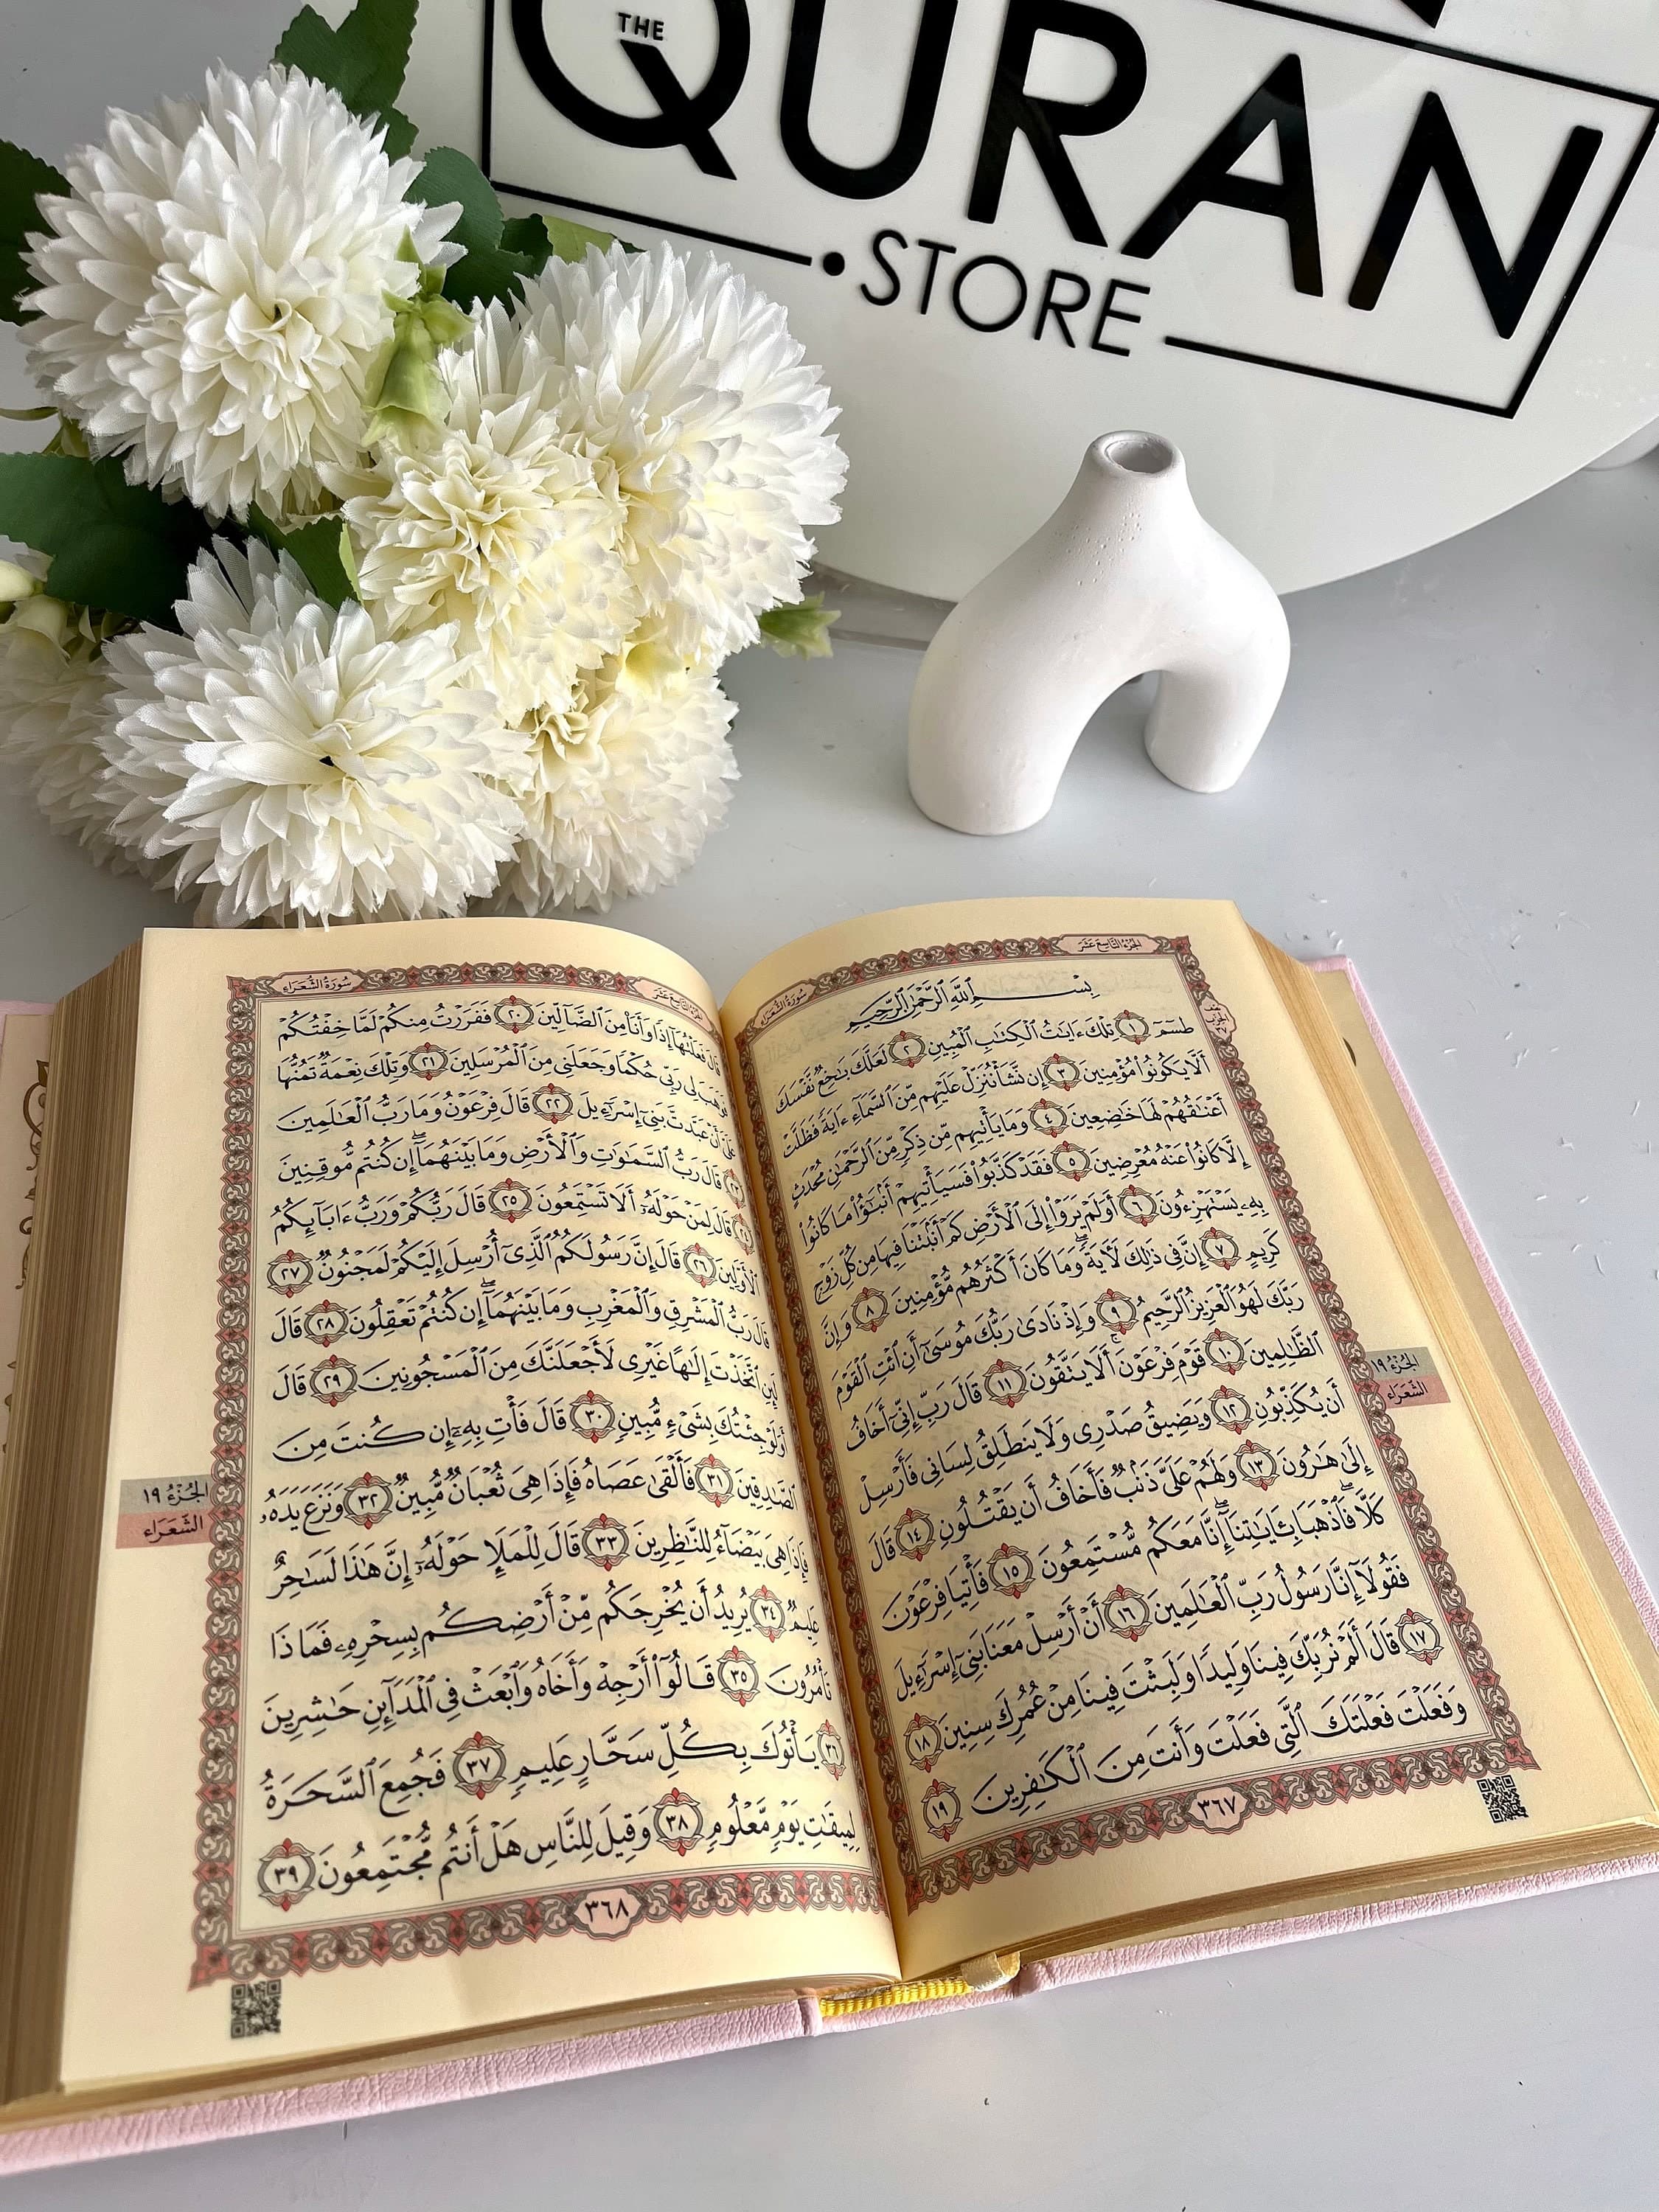 THE
QURAN
STORE
الجزء التاسع عشر
سورة الشعراء
بِسْمِ ٱللَّهِ ٱلرَّحْمَٰنِ ٱلرَّحِيمِ
طسٓمٓ ١ تِلْكَ ءَايَٰتُ ٱلْكِتَٰبِ ٱلْمُبِينِ ٢ لَعَلَّكَ بَٰخِعٌ نَّفْسَكَ
أَلَّا يَكُونُوا۟ مُؤْمِنِينَ ٣ إِن نَّشَأْ نُنَزِّلْ عَلَيْهِم مِّنَ ٱلسَّمَآءِ ءَايَةً فَظَلَّتْ
أَعْنَٰقُهُمْ لَهَا خَٰضِعِينَ ٤ وَمَا يَأْتِيهِم مِّن ذِكْرٍ مِّنَ ٱلرَّحْمَٰنِ مُحْدَثٍ
إِلَّا كَانُوا۟ عَنْهُ مُعْرِضِينَ ٥ فَقَدْ كَذَّبُوا۟ فَسَيَأْتِيهِمْ أَنۢبَٰٓؤُا۟ مَا كَانُوا۟
بِهِۦ يَسْتَهْزِءُونَ ٦ أَوَلَمْ يَرَوْا۟ إِلَى ٱلْأَرْضِ كَمْ أَنۢبَتْنَا فِيهَا مِن كُلِّ زَوْجٍ
كَرِيمٍ ٧ إِنَّ فِى ذَٰلِكَ لَءَايَةً ۖ وَمَا كَانَ أَكْثَرُهُم مُّؤْمِنِينَ ٨ وَإِنَّ
رَبَّكَ لَهُوَ ٱلْعَزِيزُ ٱلرَّحِيمُ ٩ وَإِذْ نَادَىٰ رَبُّكَ مُوسَىٰٓ أَنِ ٱئْتِ ٱلْقَوْمَ
ٱلظَّٰلِمِينَ ١٠ قَوْمَ فِرْعَوْنَ ۚ أَلَا يَتَّقُونَ ١١ قَالَ رَبِّ إِنِّىٓ أَخَافُ
أَن يُكَذِّبُونِ ١٢ وَيَضِيقُ صَدْرِى وَلَا يَنطَلِقُ لِسَانِى فَأَرْسِلْ
إِلَىٰ هَٰرُونَ ١٣ وَلَهُمْ عَلَىَّ ذَنۢبٌ فَأَخَافُ أَن يَقْتُلُونِ ١٤ قَالَ
كَلَّا ۖ فَٱذْهَبَا بِـَٔايَٰتِنَآ ۖ إِنَّا مَعَكُم مُّسْتَمِعُونَ ١٥ فَأْتِيَا فِرْعَوْنَ
فَقُولَآ إِنَّا رَسُولُ رَبِّ ٱلْعَٰلَمِينَ ١٦ أَنْ أَرْسِلْ مَعَنَا بَنِىٓ إِسْرَٰٓءِيلَ
١٧ قَالَ أَلَمْ نُرَبِّكَ فِينَا وَلِيدًا وَلَبِثْتَ فِينَا مِنْ عُمُرِكَ سِنِينَ ١٨
وَفَعَلْتَ فَعْلَتَكَ ٱلَّتِى فَعَلْتَ وَأَنتَ مِنَ ٱلْكَٰفِرِينَ ١٩
٣٦٧
الجزء ١٩
الشعراء
الجزء التاسع عشر
سورة الشعراء
قَالَ فَعَلْتُهَآ إِذًا وَأَنَا۠ مِنَ ٱلضَّآلِّينَ ٢٠ فَفَرَرْتُ مِنكُمْ لَمَّا خِفْتُكُمْ
فَوَهَبَ لِى رَبِّى حُكْمًا وَجَعَلَنِى مِنَ ٱلْمُرْسَلِينَ ٢١ وَتِلْكَ نِعْمَةٌ تَمُنُّهَا
عَلَىَّ أَنْ عَبَّدتَّ بَنِىٓ إِسْرَٰٓءِيلَ ٢٢ قَالَ فِرْعَوْنُ وَمَا رَبُّ ٱلْعَٰلَمِينَ
٢٣ قَالَ رَبُّ ٱلسَّمَٰوَٰتِ وَٱلْأَرْضِ وَمَا بَيْنَهُمَآ ۖ إِن كُنتُم مُّوقِنِينَ
٢٤ قَالَ لِمَنْ حَوْلَهُۥٓ أَلَا تَسْتَمِعُونَ ٢٥ قَالَ رَبُّكُمْ وَرَبُّ ءَابَآئِكُمُ
ٱلْأَوَّلِينَ ٢٦ قَالَ إِنَّ رَسُولَكُمُ ٱلَّذِىٓ أُرْسِلَ إِلَيْكُمْ لَمَجْنُونٌ ٢٧
قَالَ رَبُّ ٱلْمَشْرِقِ وَٱلْمَغْرِبِ وَمَا بَيْنَهُمَآ ۖ إِن كُنتُمْ تَعْقِلُونَ ٢٨ قَالَ
لَئِنِ ٱتَّخَذْتَ إِلَٰهًا غَيْرِى لَأَجْعَلَنَّكَ مِنَ ٱلْمَسْجُونِينَ ٢٩ قَالَ
أَوَلَوْ جِئْتُكَ بِشَىْءٍ مُّبِينٍ ٣٠ قَالَ فَأْتِ بِهِۦٓ إِن كُنتَ مِنَ
ٱلصَّٰدِقِينَ ٣١ فَأَلْقَىٰ عَصَاهُ فَإِذَا هِىَ ثُعْبَانٌ مُّبِينٌ ٣٢ وَنَزَعَ يَدَهُۥ
فَإِذَا هِىَ بَيْضَآءُ لِلنَّٰظِرِينَ ٣٣ قَالَ لِلْمَلَإِ حَوْلَهُۥٓ إِنَّ هَٰذَا لَسَٰحِرٌ
عَلِيمٌ ٣٤ يُرِيدُ أَن يُخْرِجَكُم مِّنْ أَرْضِكُم بِسِحْرِهِۦ فَمَاذَا
تَأْمُرُونَ ٣٥ قَالُوٓا۟ أَرْجِهْ وَأَخَاهُ وَٱبْعَثْ فِى ٱلْمَدَآئِنِ حَٰشِرِينَ
٣٦ يَأْتُوكَ بِكُلِّ سَحَّارٍ عَلِيمٍ ٣٧ فَجُمِعَ ٱلسَّحَرَةُ
لِمِيقَٰتِ يَوْمٍ مَّعْلُومٍ ٣٨ وَقِيلَ لِلنَّاسِ هَلْ أَنتُم مُّجْتَمِعُونَ ٣٩
٣٦٨
الجزء ١٩
الشعراء